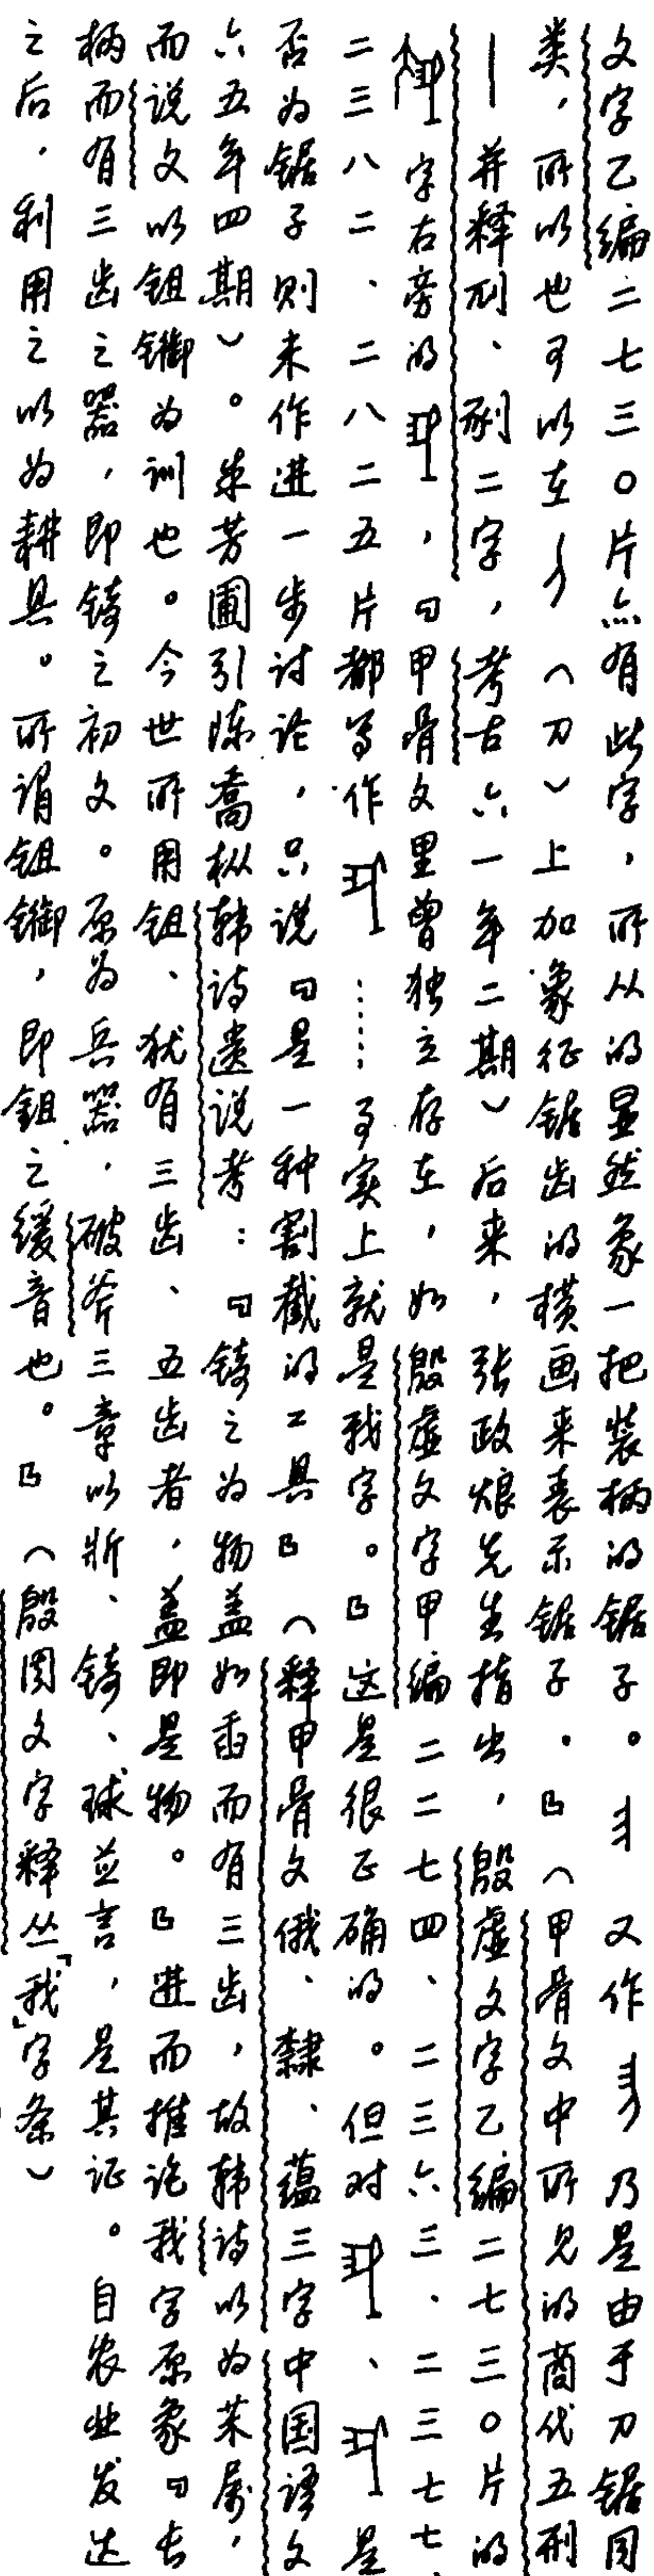 文字乙编二七三〇片点有此字，所从的显然象一把装柄的锯子。又作乃是由于刀锯同
类，所以也可以在（刀）上加象征锯齿的横画来表示锯子。』（甲骨文中所见的商代五刑
—并释刖、劓二字，考古六一年二期）后来，张政烺先生指出，殷虚文字乙编二七三〇片的
字右旁的，『甲骨文里曾独立存在，如殷虚文字甲编二二七四、二三六三、二三七七、
二三八二、二八二五片都写作……事实上就是我字。』这是很正确的。但对、是
否为锯子则未作进一步讨论，只说『是一种割截的工具』（释甲骨文俄、隸、蕴三字中国语文
六五年四期）。朱芳圃引陈喬枞韩诗遗说考：『锜之为物盖如臿而有三齿，故韩诗以为茉属，
而说文以鉏鋙为训也。今世所用鉏、犹有三齿、五齿者，盖即是物。』进而推论我字原象『长
柄而有三齿之器，即锜之初文。原为兵器，破斧三章以斨、锜、球並言，是其证。自农业发达
之后，利用之以为耕具。所谓鉏鋙，即鉏之缓音也。』（殷周文字释丛「我」字条）